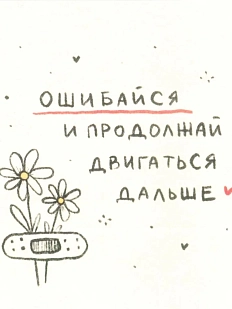 ОШИБАЙСЯ
И ПРОДОЛЖАЙ
ДВИГАТЬСЯ
ДАЛЬШЕ